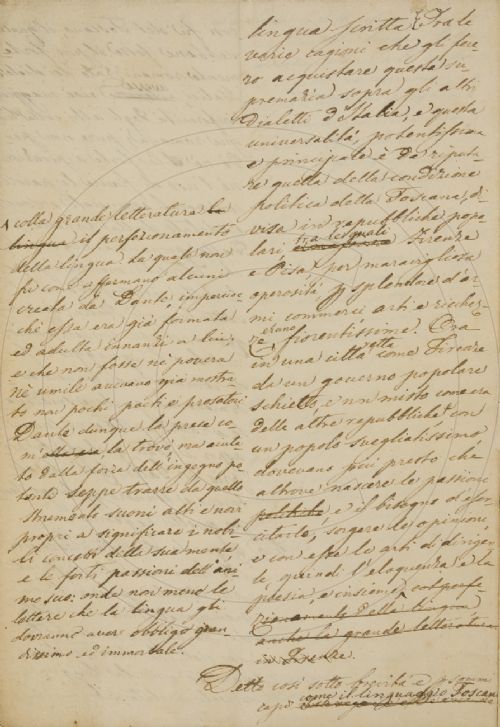 lingua scritta. Fra le
varie cagioni che gli fece-
ro acquistare questa su
premazia sopra gli altri
dialetti d'Italia, e questa
universalità, potentissima
e principale è da riputa-
re quella della condizione
politica della Toscana, di
visa in repubbliche popo
lari tra le quali Firenze
e Pisa per maravigliosa
operosità splendore d'ar
mi commerci arti e ricchez
ze erano fiorentissime. Ora
in una città come Firenze retta
da un governo popolare
schietto, e non misto come era
delle altre repubbliche con
un popolo svegliatissimo
dovevano più presto che
altrove nascere le passioni
politiche e il bisogno d'eser
citarle, sorgere le opinioni,
e con esse le arti di diriger
le, quindi l'eloquenza e la
poesia, e insieme col perfe-
zionamento della lingua
anche la grande letteratura
in Firenze.
colla grande letteratura la
lingua il perfezionamento
della lingua la quale non
fu come affermano alcuni
creata da Dante, imperoc
chè essa era già formata
ed adulta innanzi a lui
e che non fosse nè povera
nè umile avevano già mostra
to non pochi poeti e prosatori
Dante dunque la prese co
m'ella era la trovò ma aiuta
to dalla forza dell'ingegno po
tente seppe trarre da quello
strumento suoni alti e novi
propri a significare i nobi
li concetti della sua mente
e le forti passioni dell'ani
mo suo: onde non meno le
lettere che la lingua gli
dovranno aver obbligo gran
dissimo ed immortale.
Detto così sotto brevità e per sommi
capi come il linguaggio Toscano